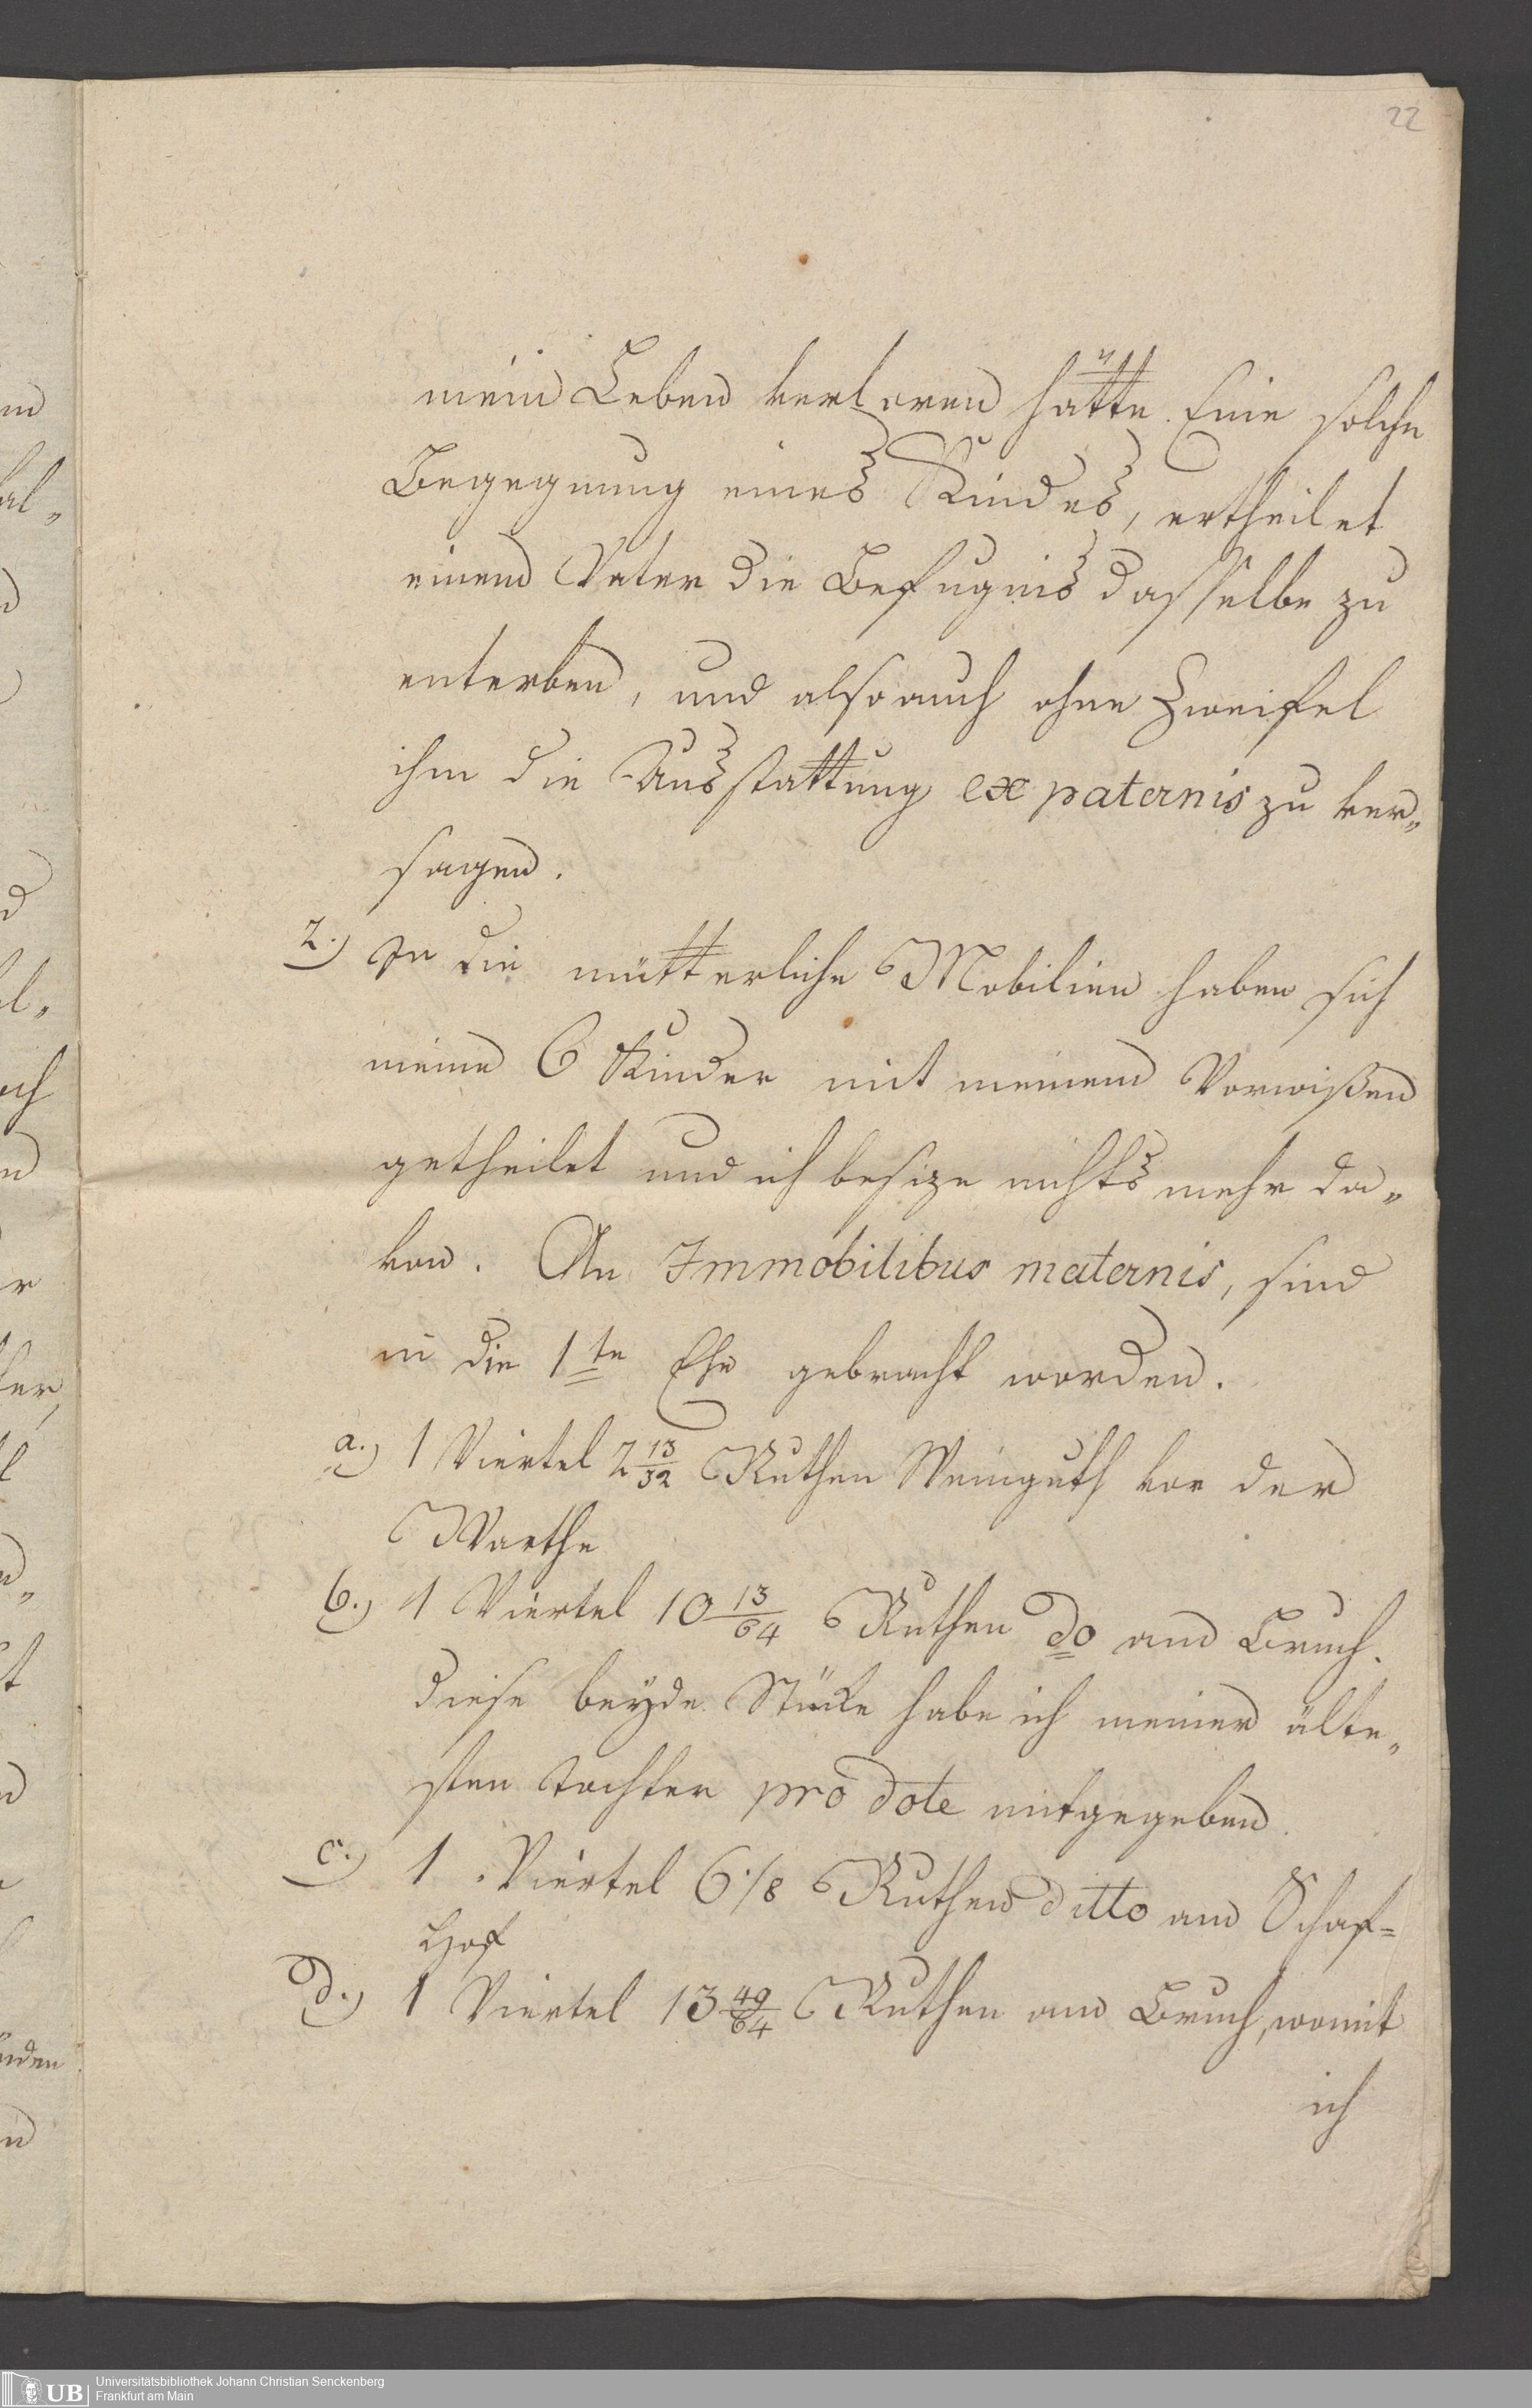 22
mein Leben verloren hätte. Eine solche
Begegnung eines Kindes, ertheilet
einem Vater die Befugnis dasselbe zu
enterben, und also auch ohne Zweifel
ihm die Ausstattung ex paternis zu ver„
sagen.
2.) In die mütterliche Mobilien haben sich
meine 6 Kinder mit meinem Vorwißen
getheilet und ich besize nichts mehr da„
von. An Immobilibus maternis, sind
in die 1te Ehe gebracht worden.
a.) 1 Viertel 2 13/32 Ruthen Weinguth vor der
Warthe
b.) 1 Viertel 10 13/64 Ruthen do am Bruch.
diese beyde Stücke habe ich meiner älte„
sten Tochter pro dote mitgegeben.
c.) 1 Viertel 6 1/8 Ruthen ditto am Schaf=
Hof
d.) 1 Viertel 13 49/64 Ruthen am Bruch, womit
ich
UB
Universitätsbibliothek Johann Christian Senckenberg
Frankfurt am Main